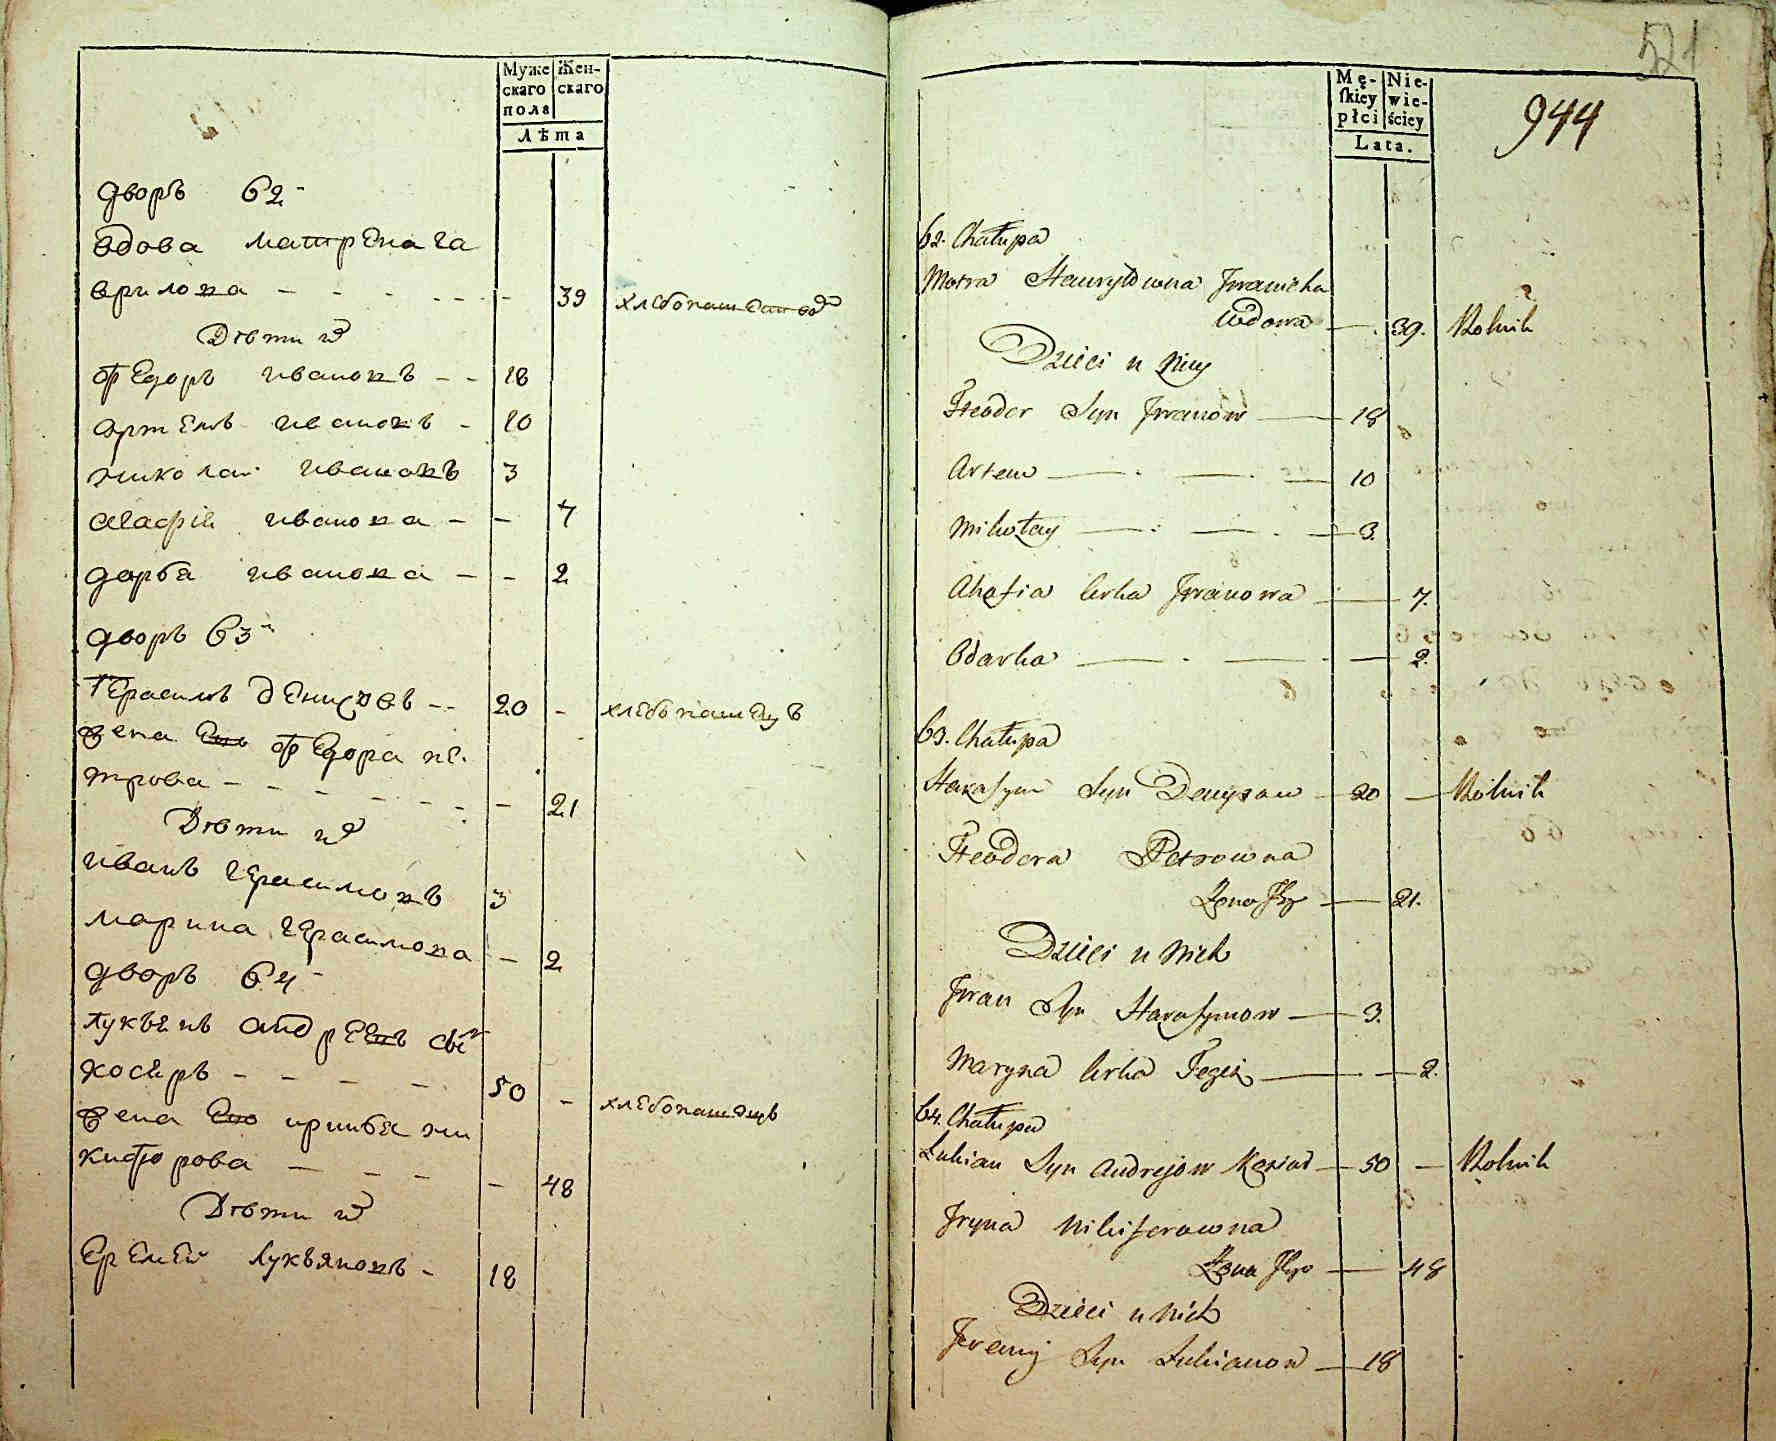 Муже
скаго
пола
Жен-
скаго
Лѣта
дворъ 62
вдова матрена га
врилова - - - - - - 39 хлебопашество
Дѣти их
ѳедоръ ивановъ - - 18
артемъ ивановъ - 10
николай ивановъ 3
агафія иванова - - 7
дарья иванова - - 2
дворъ 63
Герасимъ денисовъ - - 20 - хлебопашецъ
жена ево ѳедора пе
трова - - - - - - - 21
Дѣти их
иванъ герасимовъ 3
марина герасимова - 2
дворъ 64
лукьянъ андреевъ
косяръ - - - - 50 - хлебопашецъ
жена ево ирина ни
кифорова - - - - 48
Дѣти их
еремей лукьяновъ - 18
521
944
Mę-
skiey
płci
Nie-
wie-
ściey
Lata.
62. Chałupa
Motra Hawryłowna Iwanicha
Wdowa — 39. Rolnik
Dzieci u Niey
Fteoder Syn Iwanow — 18
Artem — — — 10
Mikołay — — — 3.
Ahafia Corka Iwanowa — 7.
Odarka — — — 2.
63. Chałupa
Harasym Syn Denysow — 20 — Rolnik
Fteodora Petrowna
Żona Jego — 21.
Dzieci u Nich
Iwan Syn Harasymow — 3.
Maryna Corka Tegoż — — 2.
64. Chałupa
Lukian Syn Andrejow Kosiar — 50 — Rolnik
Iryna Nikiferowna
Żona Jego — 48
Dzieci u Nich
Jeremij Syn Lukianow — 18